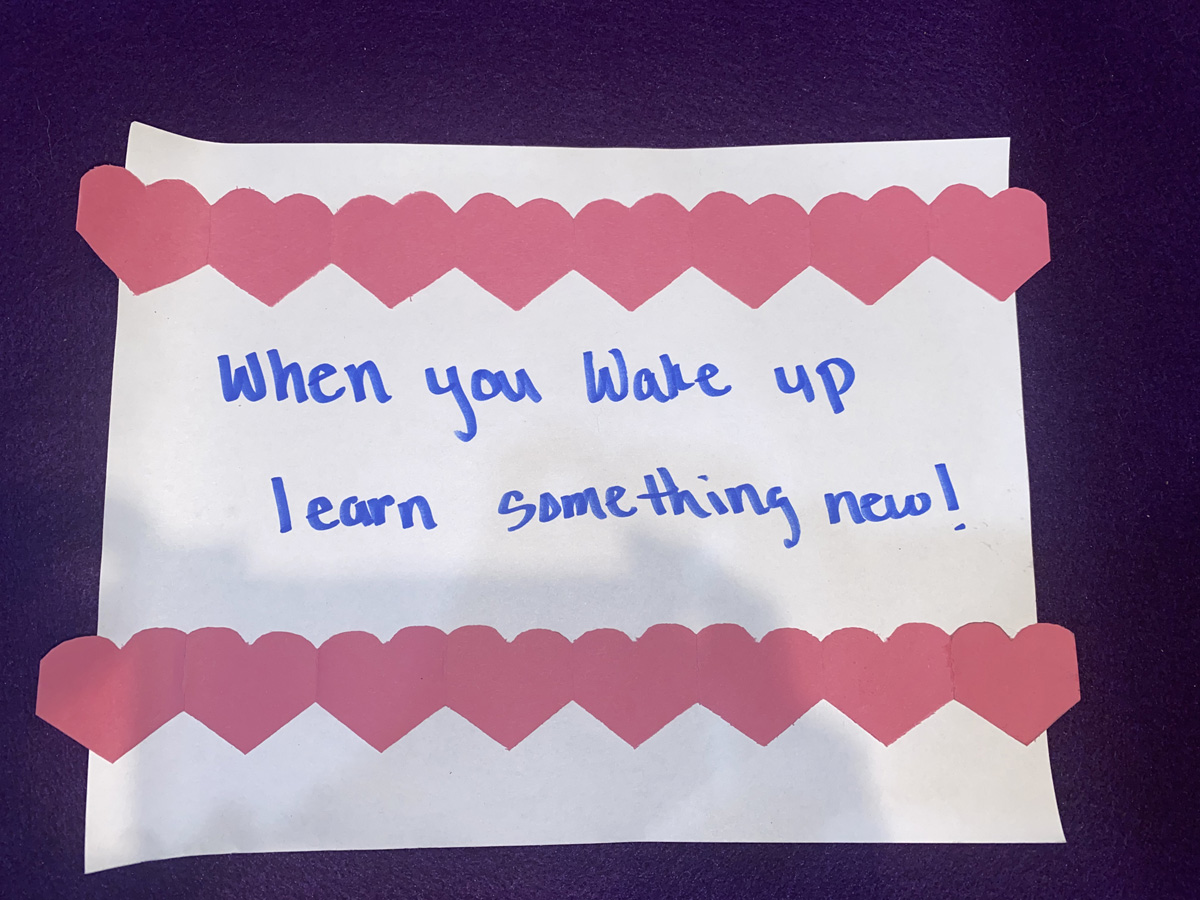 When you Wake up
learn something new!